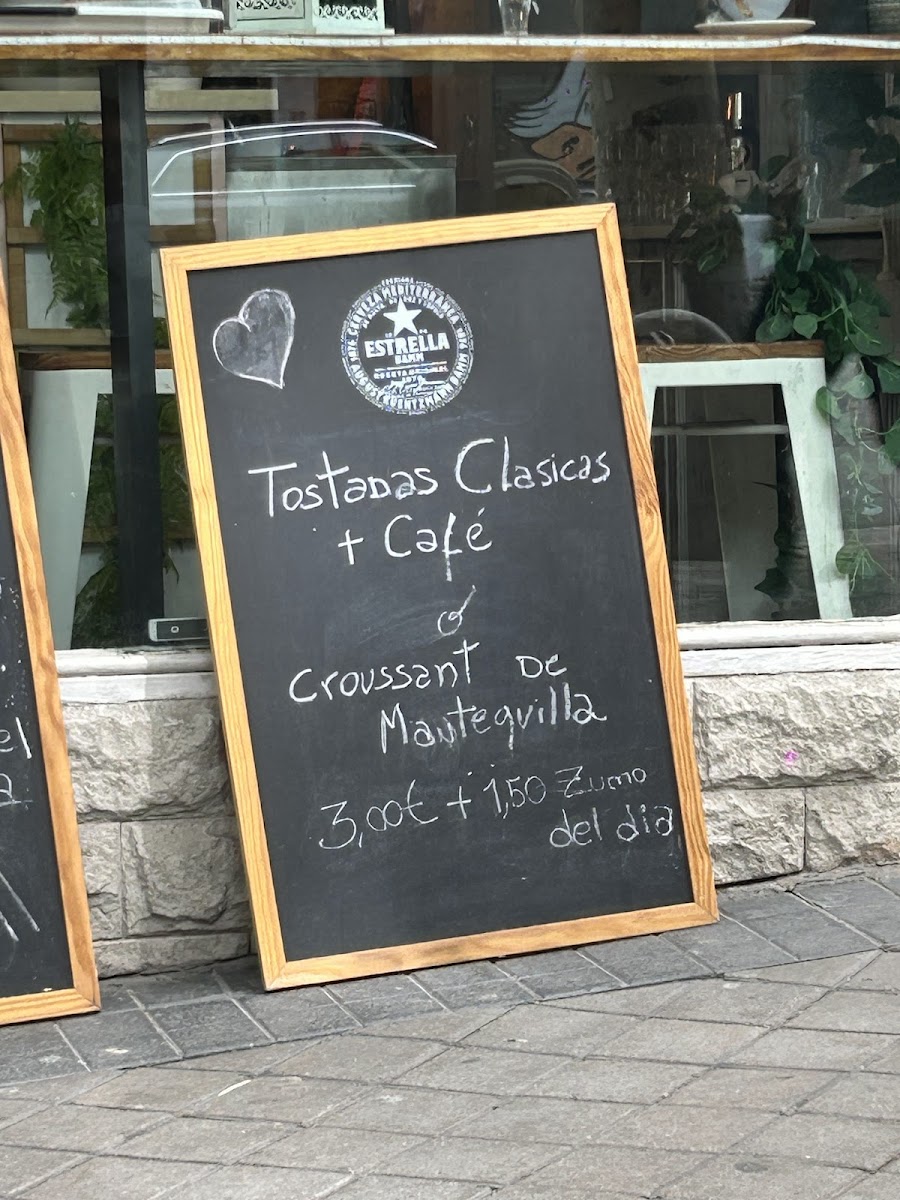 CERVEZA MEDITERRANEA
ESTRELLA
DAMM
Tostadas Clasicas
+ Café
ó
Croussant De
Mantequilla
3,00€ + 1,50 Zumo
del dia
el
a